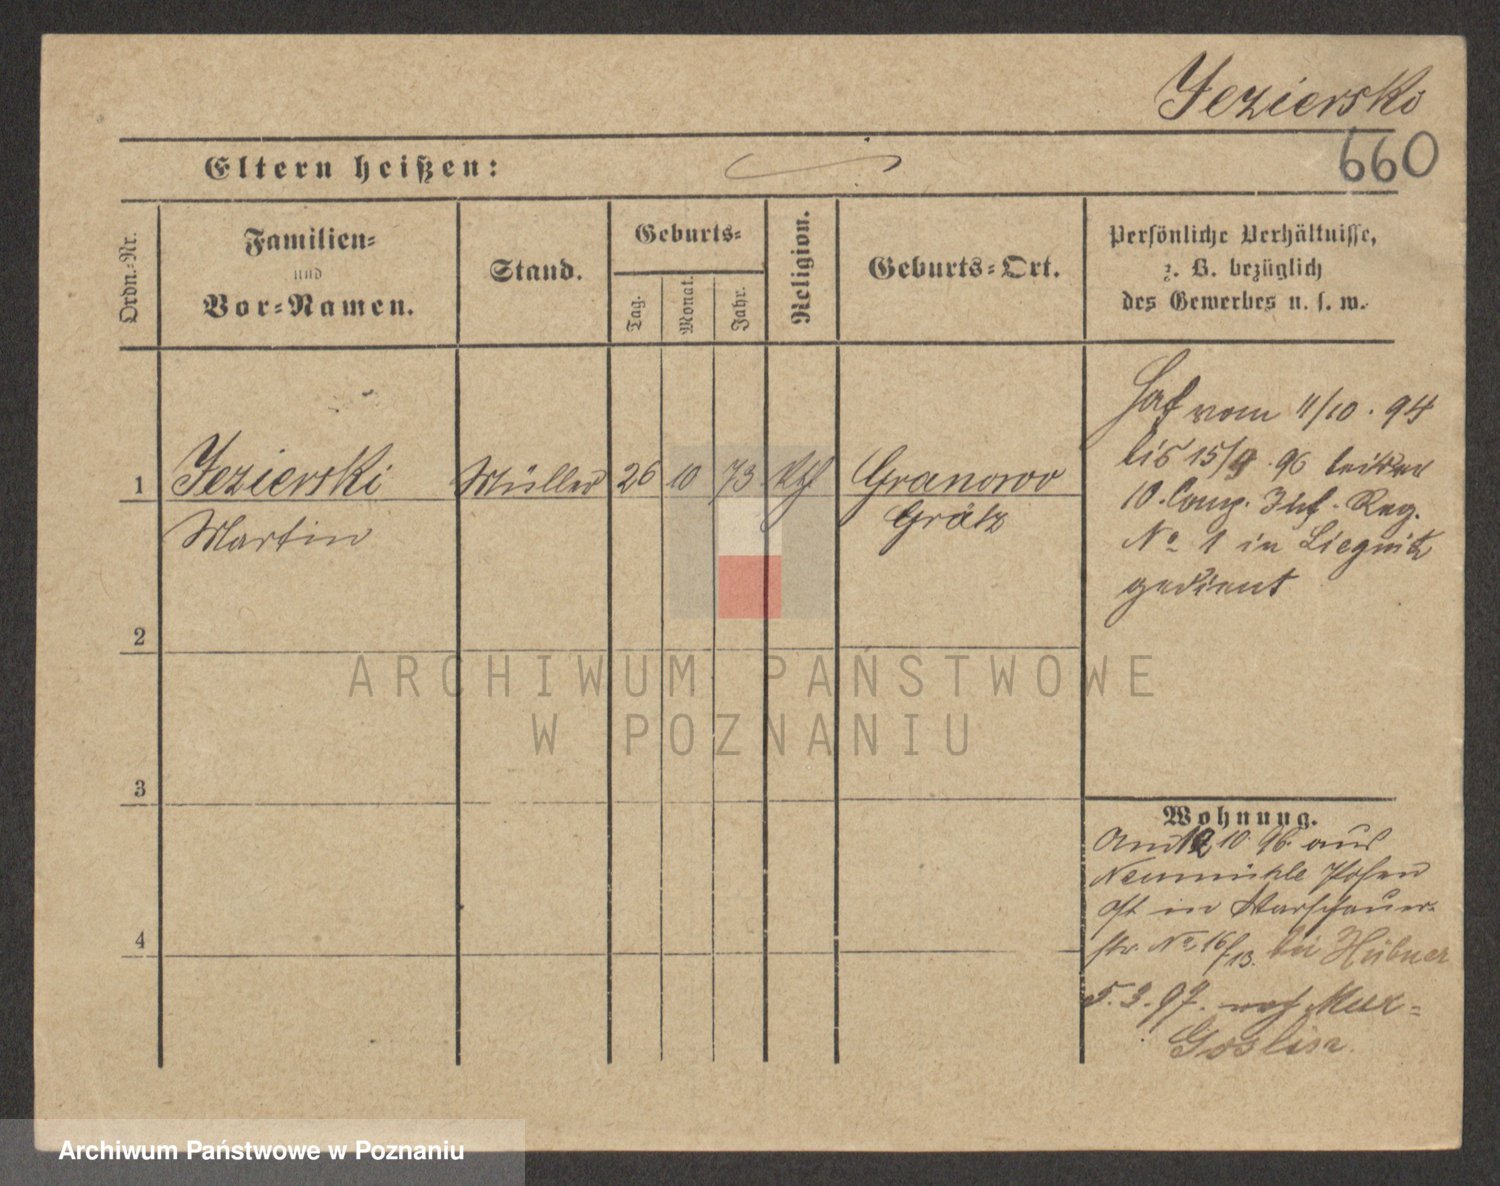 Jezierski
660
Eltern heißen:
Ordn.-Nr.
Familien-
und
Vor-Namen.
Stand.
Geburts-
Tag.
Monat.
Jahr.
Religion.
Geburts-Ort.
Persönliche Verhältnisse,
z. B. bezüglich
des Gewerbes u. s. w.
1
Jezierski
Martin
Müller
26
10
73
kth
Granowo
Grätz
Hat vom 11/10. 94
bis 15/9. 96 bei der
10. Comp. Inf. Reg.
No 1 in Liegnitz
gedient
2
3
4
Wohnung.
Am 12 10. 96. aus
Neumühle Posen
Ost in Warschauer-
str. No 16/13. bei Hübner
5.3.97. nach Mur-
Goslin.
ARCHIWUM PAŃSTWOWE
W POZNANIU
Archiwum Państwowe w Poznaniu